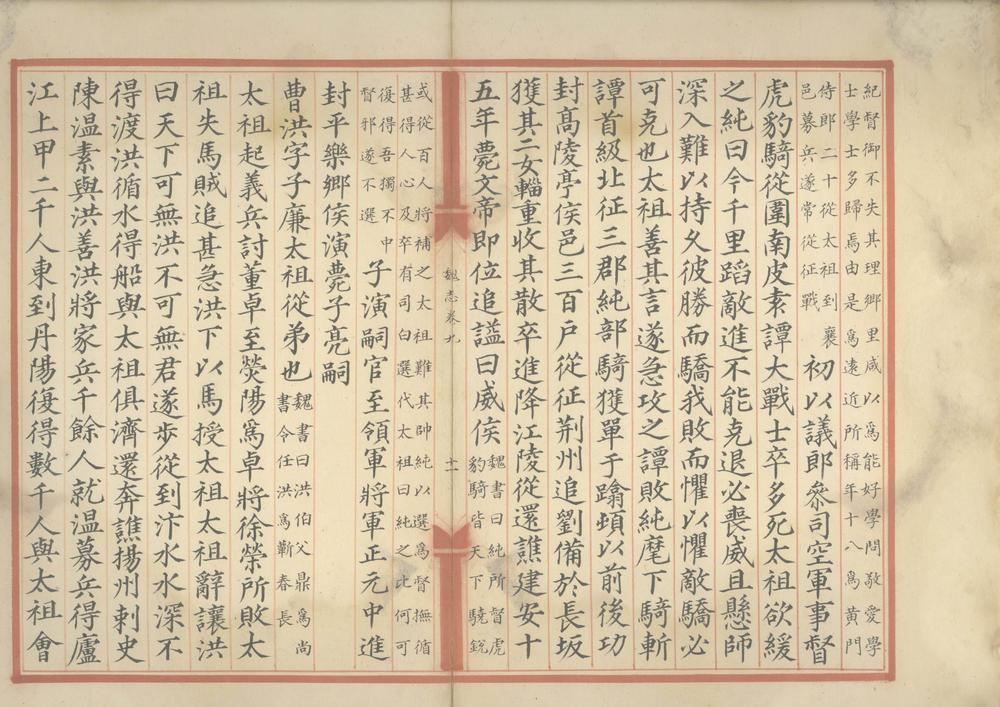 紀督御不失其理鄉里咸以爲能好學問敬愛學
士學士多歸焉由是爲遠近所稱年十八爲黃門
侍郎二十從太祖到襄
邑募兵遂常從征戰
初以議郎叅司空軍事督
虎豹騎從圍南皮袁譚大戰士卒多死太祖欲緩
之純曰今千里蹈敵進不能克退必喪威且懸師
深入難以持久彼勝而驕我敗而懼以懼敵驕必
可克也太祖善其言遂急攻之譚敗純麾下騎斬
譚首級北征三郡純部騎獲單于蹹頓以前後功
封髙陵亭侯邑三百户從征荆州追劉備於長坂
獲其二女輜重收其散卒進降江陵從還譙建安十
五年薨文帝即位追諡曰威侯
魏書曰純所督虎
豹騎皆天下驍銳
魏志卷九
十一
或從百人將補之太祖難其帥純以選爲督撫循
甚得人心及卒有司白選代太祖曰純之比何可
復得吾獨不中
督邪遂不選
子演嗣官至領軍將軍正元中進
封平樂鄉侯演薨子亮嗣
曹洪字子廉太祖從弟也
魏書曰洪伯父鼎爲尚
書令任洪爲蘄春長
太祖起義兵討董卓至熒陽爲卓將徐榮所敗太
祖失馬賊追甚急洪下以馬授太祖太祖辭讓洪
曰天下可無洪不可無君遂歩從到汴水水深不
得渡洪循水得船與太祖俱濟還奔譙揚州剌史
陳温素與洪善洪將家兵千餘人就温募兵得廬
江上甲二千人東到丹陽復得數千人與太祖會